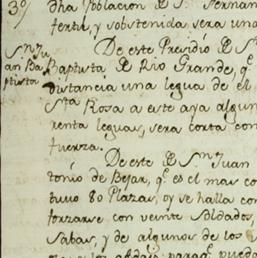 3º/ dha Poblacion de S. Fernan
fertil, y sobstenida sera una
Sn Ju
an Ba
ptista
De este Presidio de Sn
Baptista de Rio Grande, qe
distancia una legua de el
Sta Rosa a este aya algun
renta leguas, sera corta con
fuerza.
De este de Sn Juan
tonio de Bejar, qe es el mas co
tuvo 80 Plazas, oy se halla con
forzarse con veinte Soldados,
Sabas, y de algunos de los